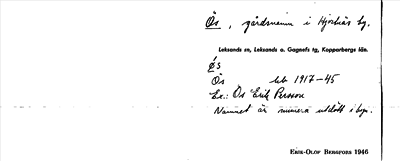 Ös, gårdsnamn i Hjortnäs by.
Leksands sn, Leksands o. Gagnefs tg, Kopparbergs län.
ɸs
Ös hb 1917-45
Ex.: Ös Erik Persson
Namnet är numera utdött i byn.
ERIK-OLOF BERGFORS 1946